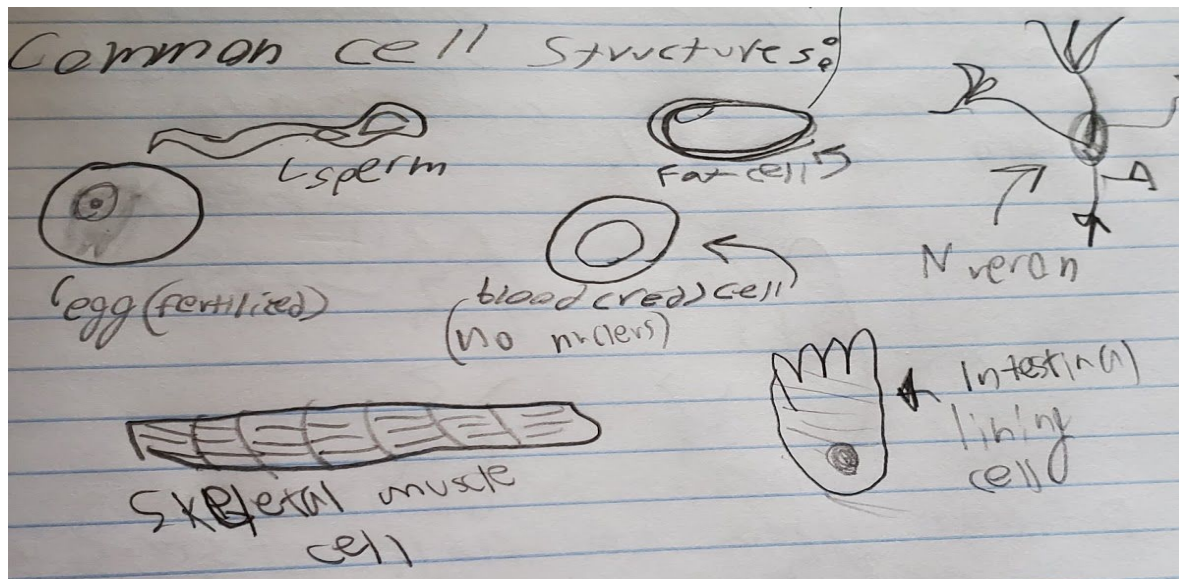 Common cell Structures:
sperm
Fat cell
Nueron
egg (fertilized)
blood (red) cell
(no nucleus)
Intestinal
lining
cell
Skeletal muscle
cell